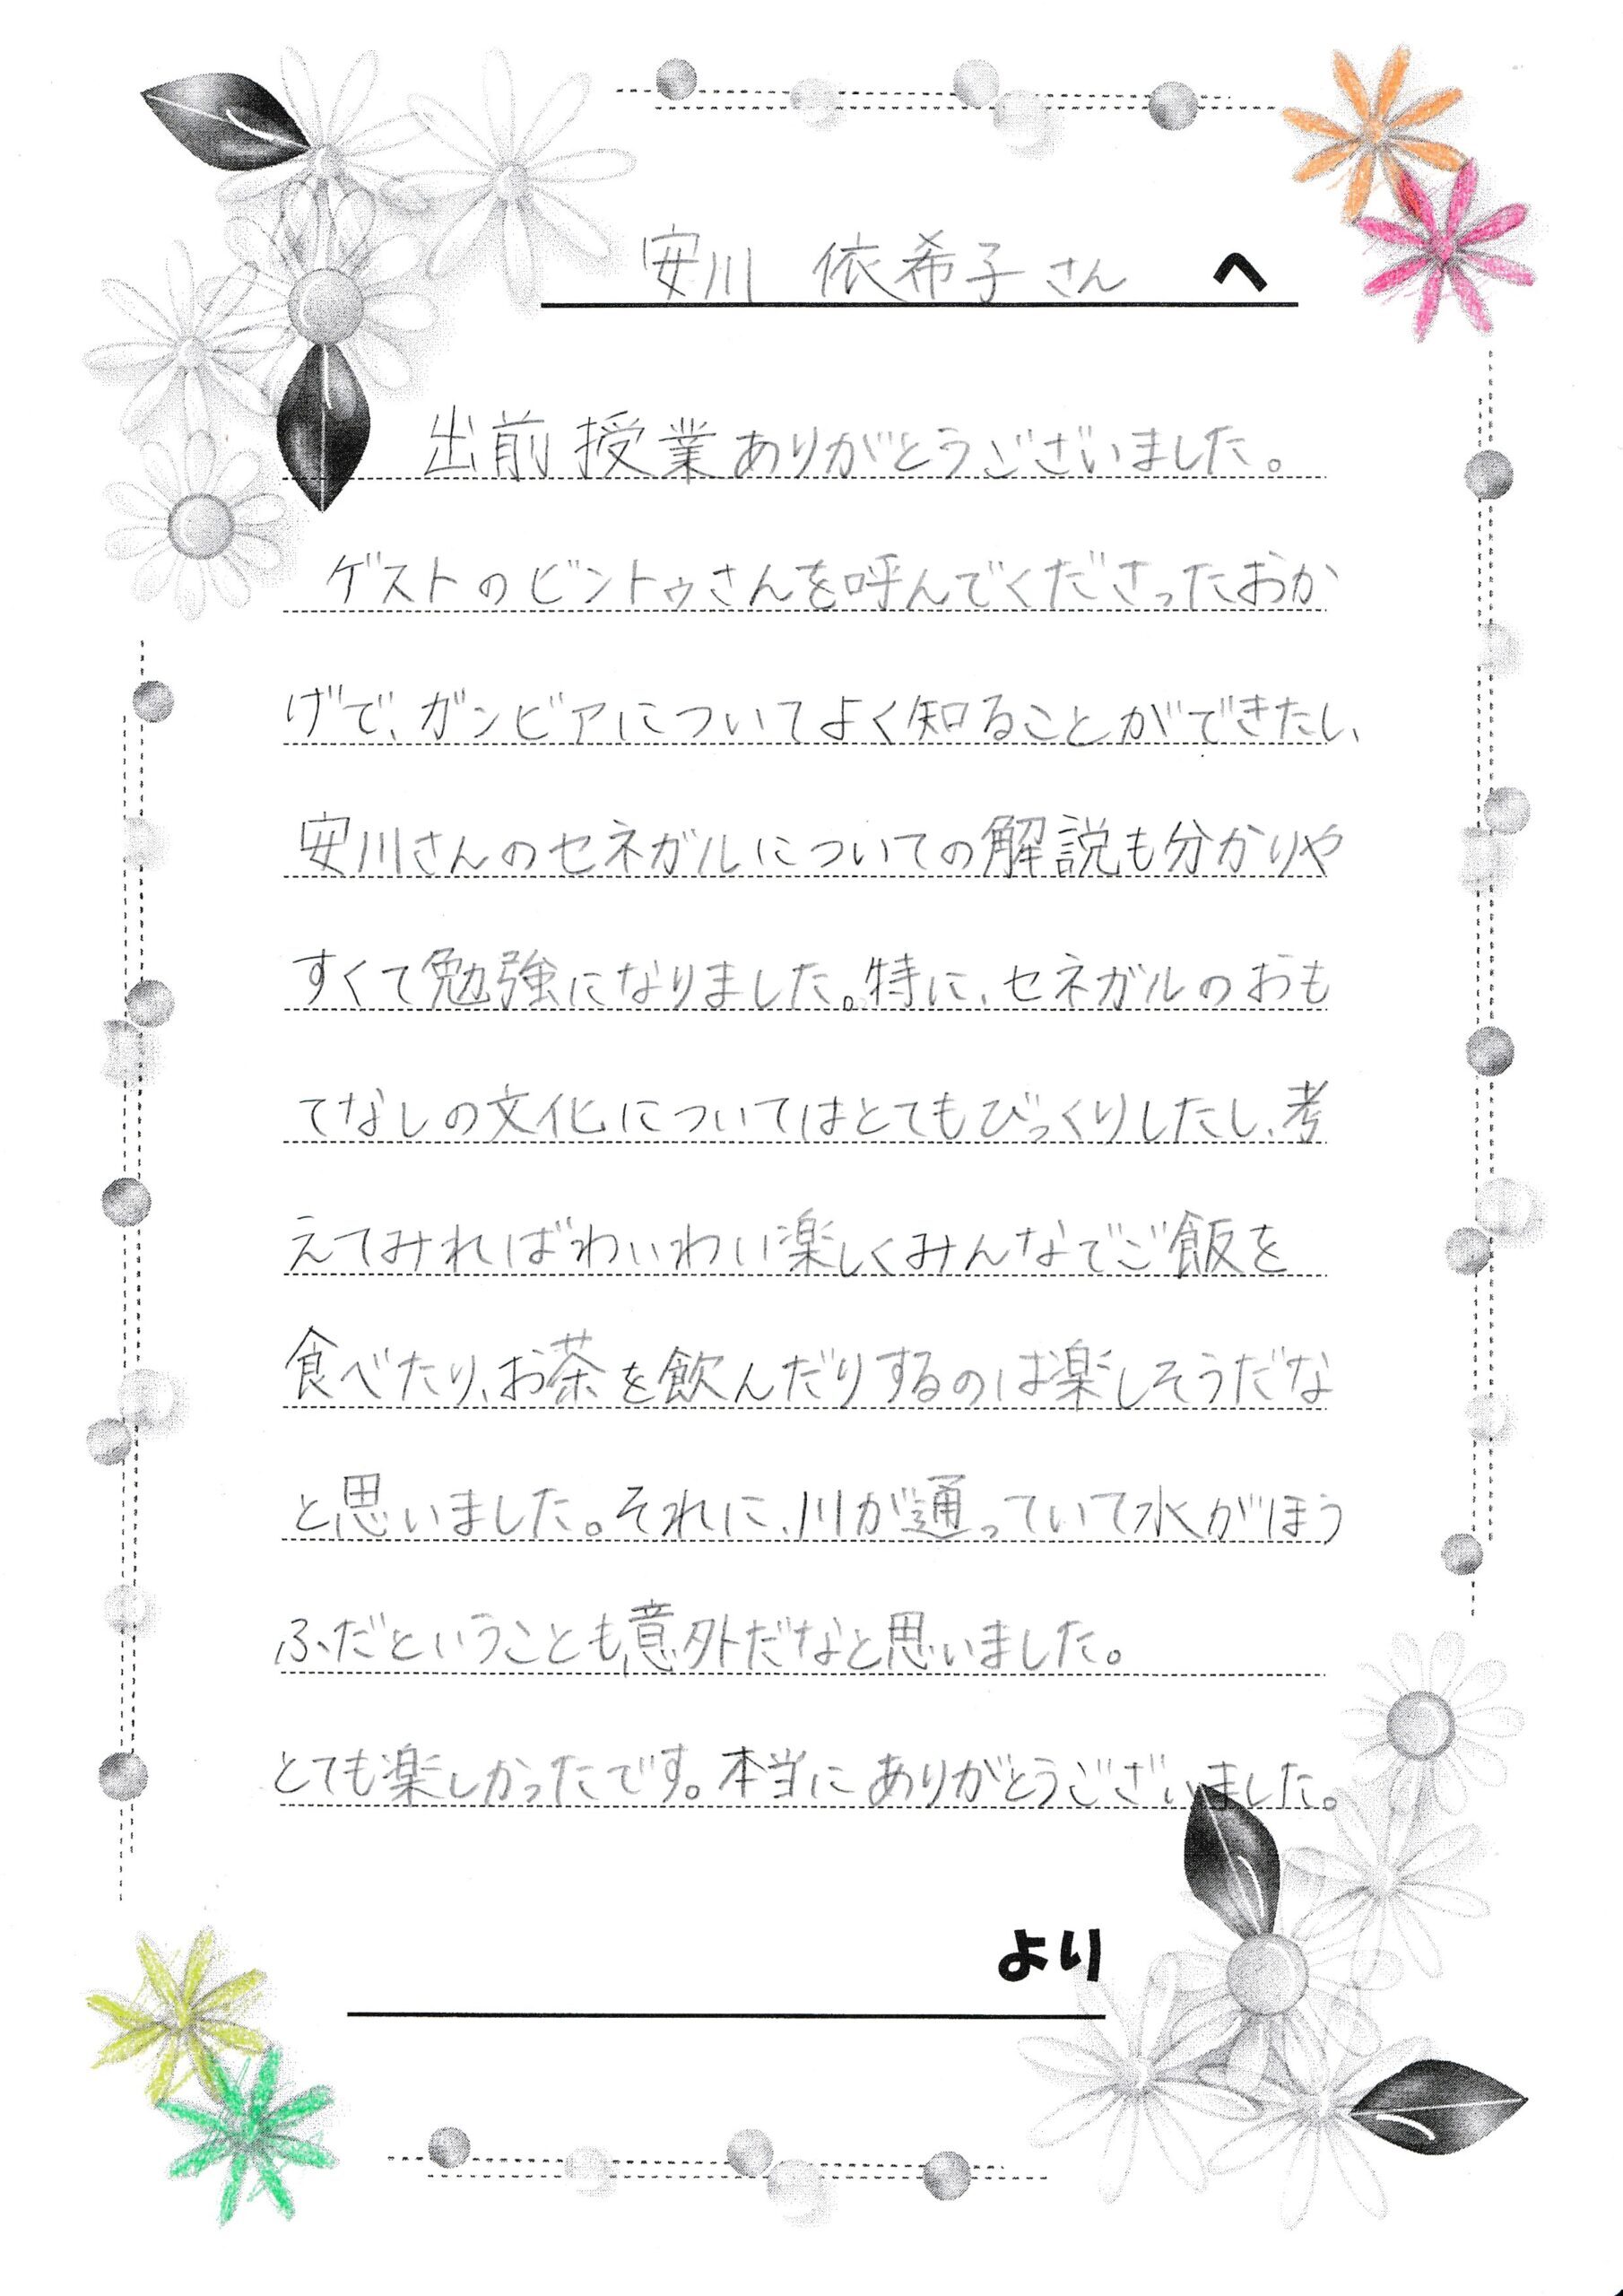 安川 依希子さん へ
出前授業ありがとうございました。
ゲストのビントゥさんを呼んでくださったおか
げで、ガンビアについてよく知ることができたし、
安川さんのセネガルについての解説も分かりや
すくて勉強になりました。特に、セネガルのおも
てなしの文化についてはとてもびっくりしたし、考
えてみればわいわい楽しくみんなでご飯を
食べたり、お茶を飲んだりするのは楽しそうだな
と思いました。それに、川が通っていて水がほう
ふだということも意外だなと思いました。
とても楽しかったです。本当にありがとうございました。
より